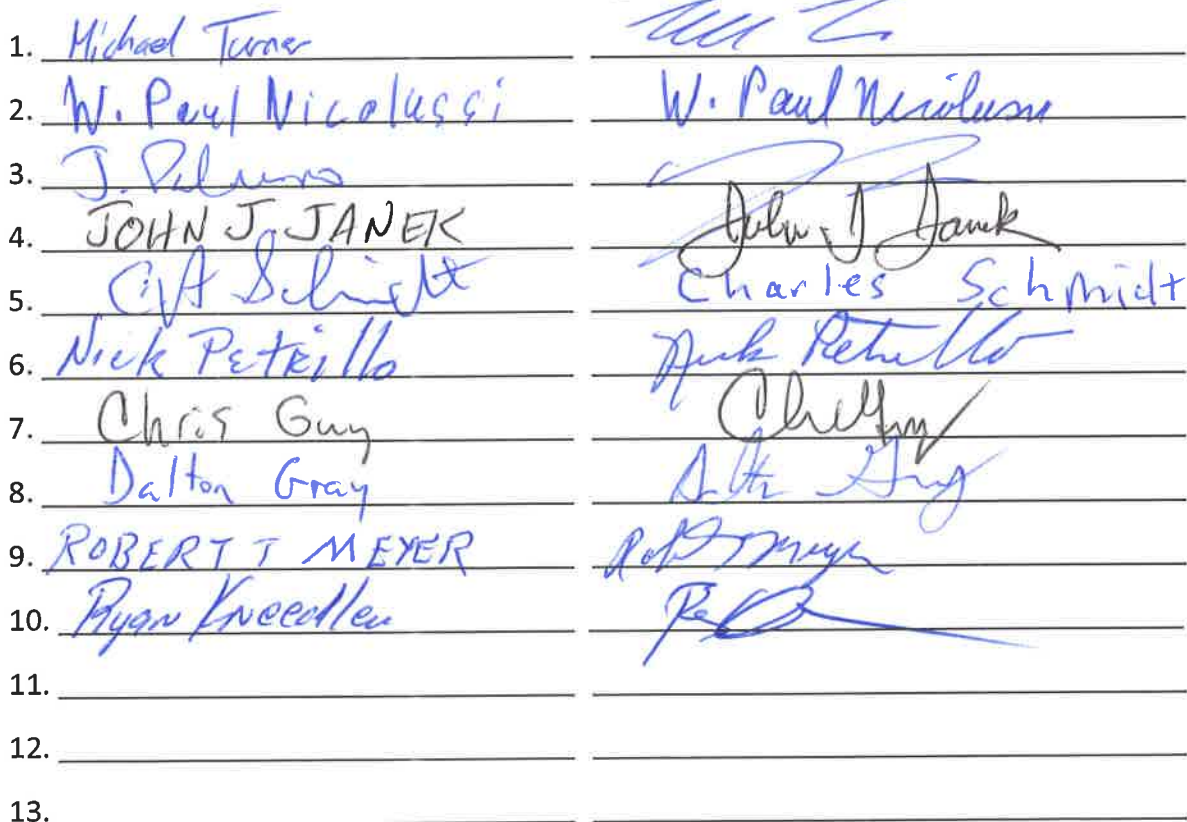 1. Michael Turner
2. W. Paul Nicolussi W. Paul Nicolussi
3. J.
4. JOHN J. JANEK John J Janek
5. Schmidt Charles Schmidt
6. Nick Petrillo Nick Petrillo
7. Chris Guy
8. Dalton Gray Gray
9. ROBERT T MEYER Meyer
10. Ryan Kneedler
11.
12.
13.